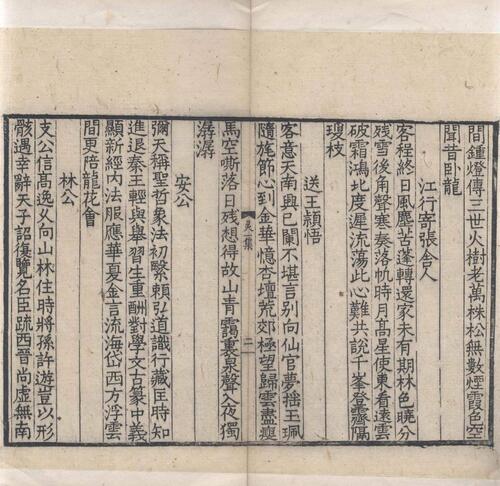 問鍾燈傳三世火樹老萬株松無數煙霞色空
聞昔臥龍
江行寄張舍人
客程終日風塵苦蓬轉還家未有期林色曉分
殘雪後角聲寒奏落帆時月高星使東看遠雲
破霜鴻北度遲流蕩此心難共說千峯登霽隔
瓊枝
送王頴悟
客意天南興已闌不堪言別向仙官夢揺玉珮
隨旄節心到金華憶杏壇荒郊極望歸雲盡瘦
一集
二
馬空嘶落日残想得故山青靄裏泉聲入夜獨
潺潺
安公
彌天稱聖哲象法初繫賴弘道識行藏匡時知
進退秦王輕與舉習生重酬對學文古篆中義
顯新經内法服應華夏金言流海岱西方浮雲
間更陪龍花會
林公
支公信高逸乆向山林住時將孫許遊豈以形
骸遇幸辭天子詔復覽名臣疏西晉尚虛無南